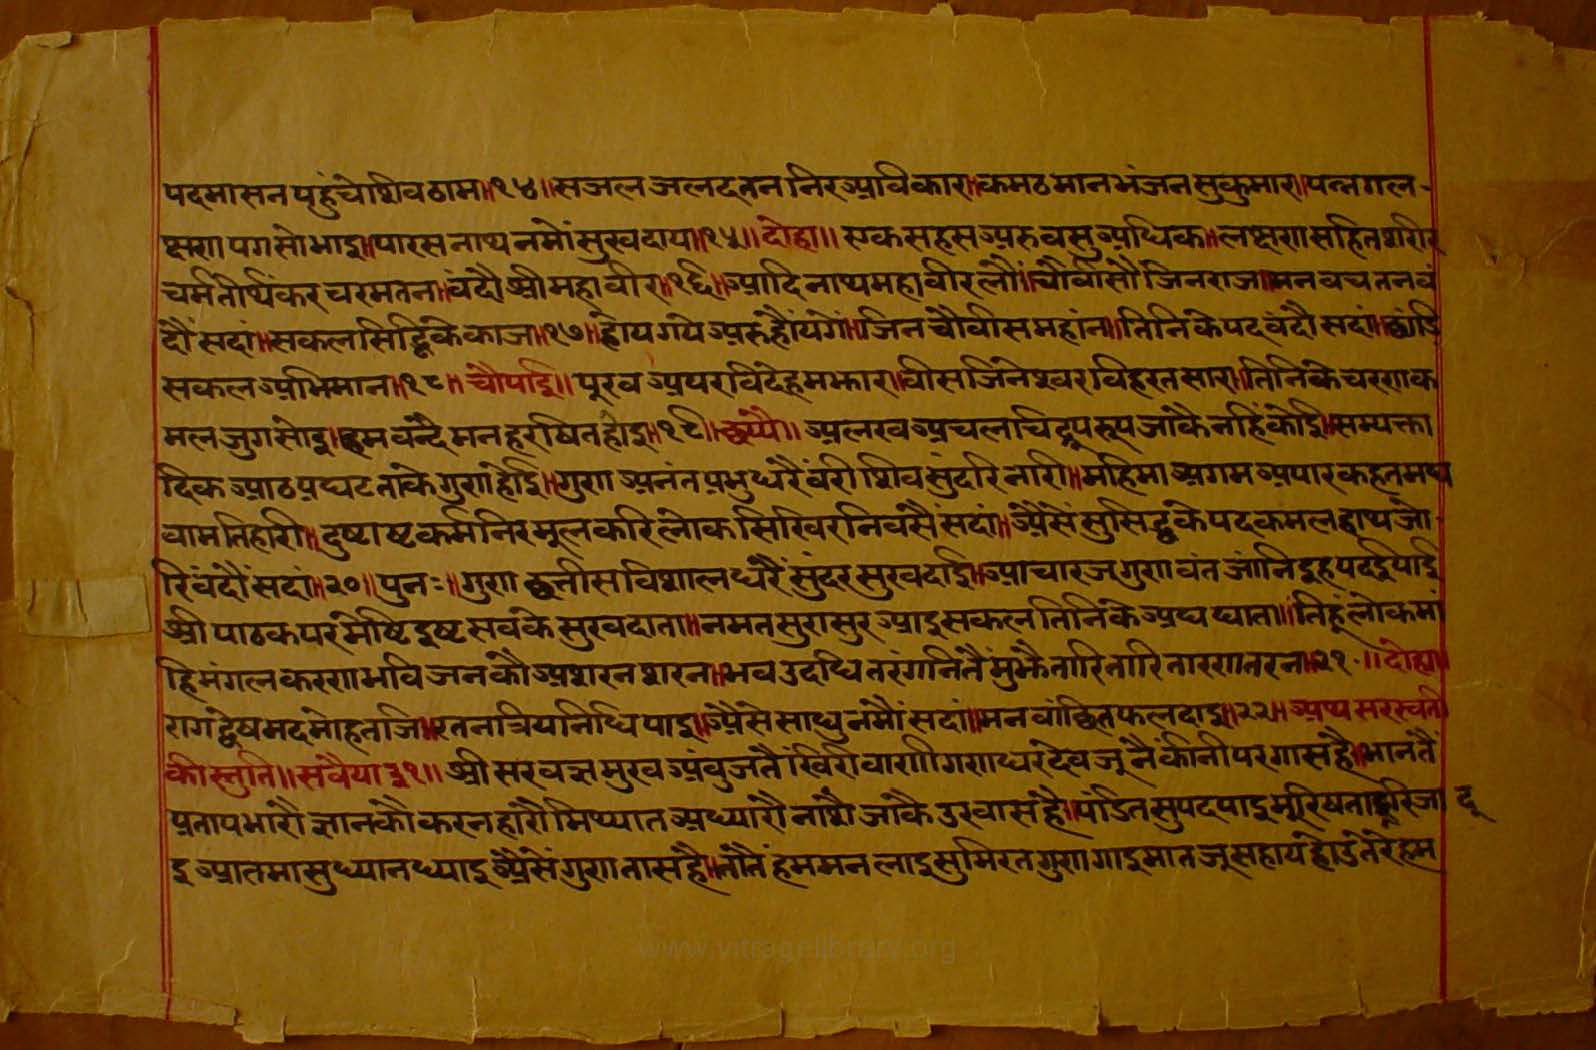 पदमासन पहुंचे शिवठाम॥१४॥ सजल जलद तन निर अविकार॥ कमठ मान भंजन सुकुमार॥ पन्नग ल
क्षण पग सोभाइ॥ पारसनाथ नमों सुखदाय॥१५॥ दोहा॥ एक सहस अरु वसु अधिक॥ लक्षण सहित शरीर
चर्म तीर्थंकर चरमतन॥ वंदौ श्री महावीर॥१६॥ आदिनाथ महावीर लौं॥ चौवीसौं जिनराज॥ मन वच तन वं
दौं सदां॥ सकल सिद्धि के काज॥१७॥ होय गये अरु होंयगे॥ जिन चौवीस महांन॥ तिनिके पद वंदौ सदां॥ छांडि
सकल अभिमान॥१८॥ चौपाई॥ पूरव अपर विदेह मझार॥ वीस जिनेश्वर विहरत सार॥ तिनिके चरणक
मल जुग सोइ॥ हम वंदै मन हरषित होइ॥१९॥ छप्पै॥ अलख अचल चिद्रूप रूप जाकै नहिं कोइ॥ सम्यक्ता
दिक आठ प्रघट ताके गुण होइ॥ गुण अनंत प्रमु धरैं वरी शिव सुंदरि नारी॥ महिमा अगम अपार कहत मघ
वा मति हारी॥ दुष्टाष्ट कर्म निरमूल करि लोक सिखिर निवसैं सदां॥ अैसैं सु सिद्ध के पद कमल हाथ जो
रि वंदौं सदां॥२०॥ पुनः॥ गुण छत्तीस विशाल धरैं सुंदर सुखदाई॥ आचारज गुणवंत जांनि दुह पद द्विपाइ
श्री पाठक परमेष्टि दुष्ट सव के सुखदाता॥ नमत सुरासुर आइ सकल तिनिके अघ घाता॥ तिहूं लोक मां
हि मंगल करण भवि जन कौ अशरन शरन॥ भव उदधि तरंगनि तैं मुझै तारि तारि तारण तरन॥२१॥ दोहा॥
राग द्वेष मद मोह तजि॥ रतनत्रिय निधि पाइ॥ अैसे साधु नमौं सदां॥ मन वांछित फल दाइ॥२२॥ अथ सरस्वती
की स्तुति॥ सवैया ३१॥ श्री सरवज्ञ मुख अंवुज तैं खिरी वाणी गणधर देव जू नैं कीनी परगास है॥ भान तैं
प्रताप भारौ ज्ञान कौ करन हारौ मिथ्यात अंध्यारौ नाशै जाकै उरवास है॥ पंडित सुपद पाइ मूरिषता दूरि जा
इ आतमा सुध्यान ध्याइ अैसैं गुण तास है॥ तौतैं हंम मन लाइ सुमिरत गुण गाइ मात जू सहाय होउ तेरे हम
www.vitragelibrary.org